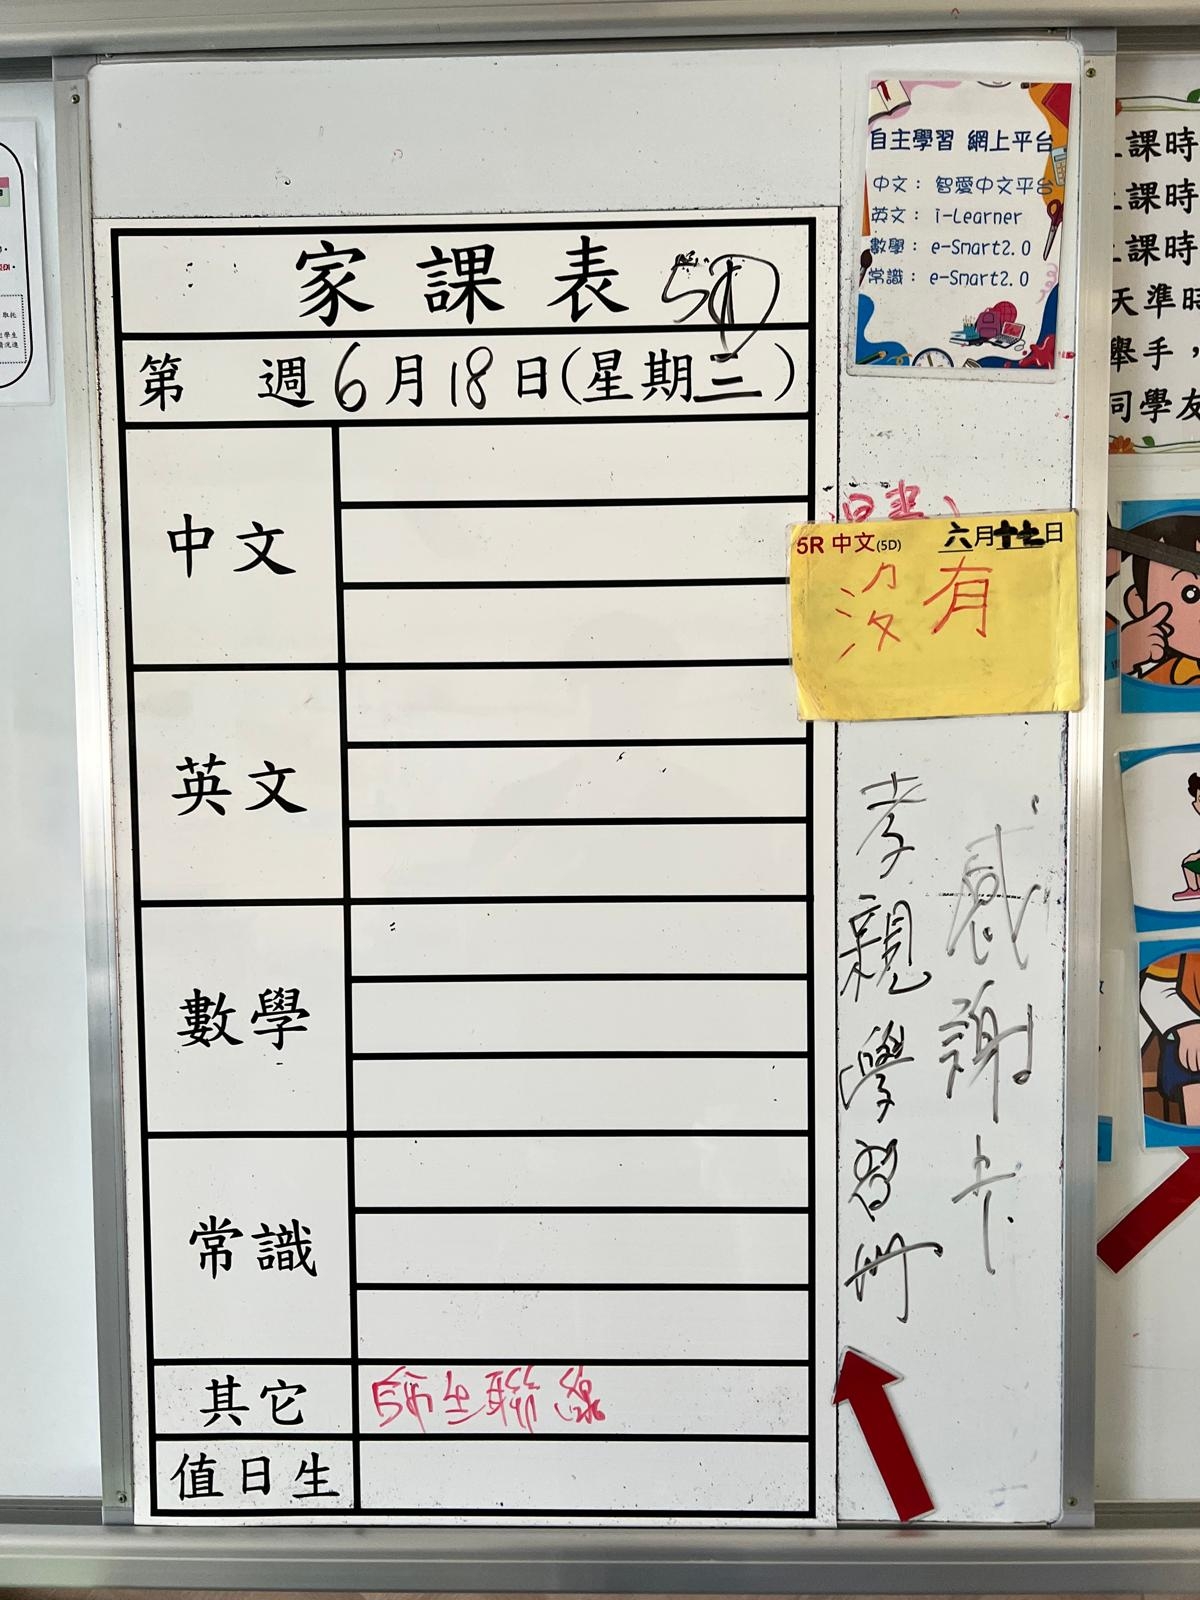 家課表 5D
第 週 6月18日(星期三)
中文
英文
數學
常識
其它 師生聯線
值日生
自主學習 網上平台
中文： 智愛中文平台
英文： i-Learner
數學： e-Smart2.0
常識： e-Smart2.0
5R 中文(5D) 六月十七日
沒有
感謝卡
孝親學習冊
課時
課時
課時
天準時
舉手，
同學友